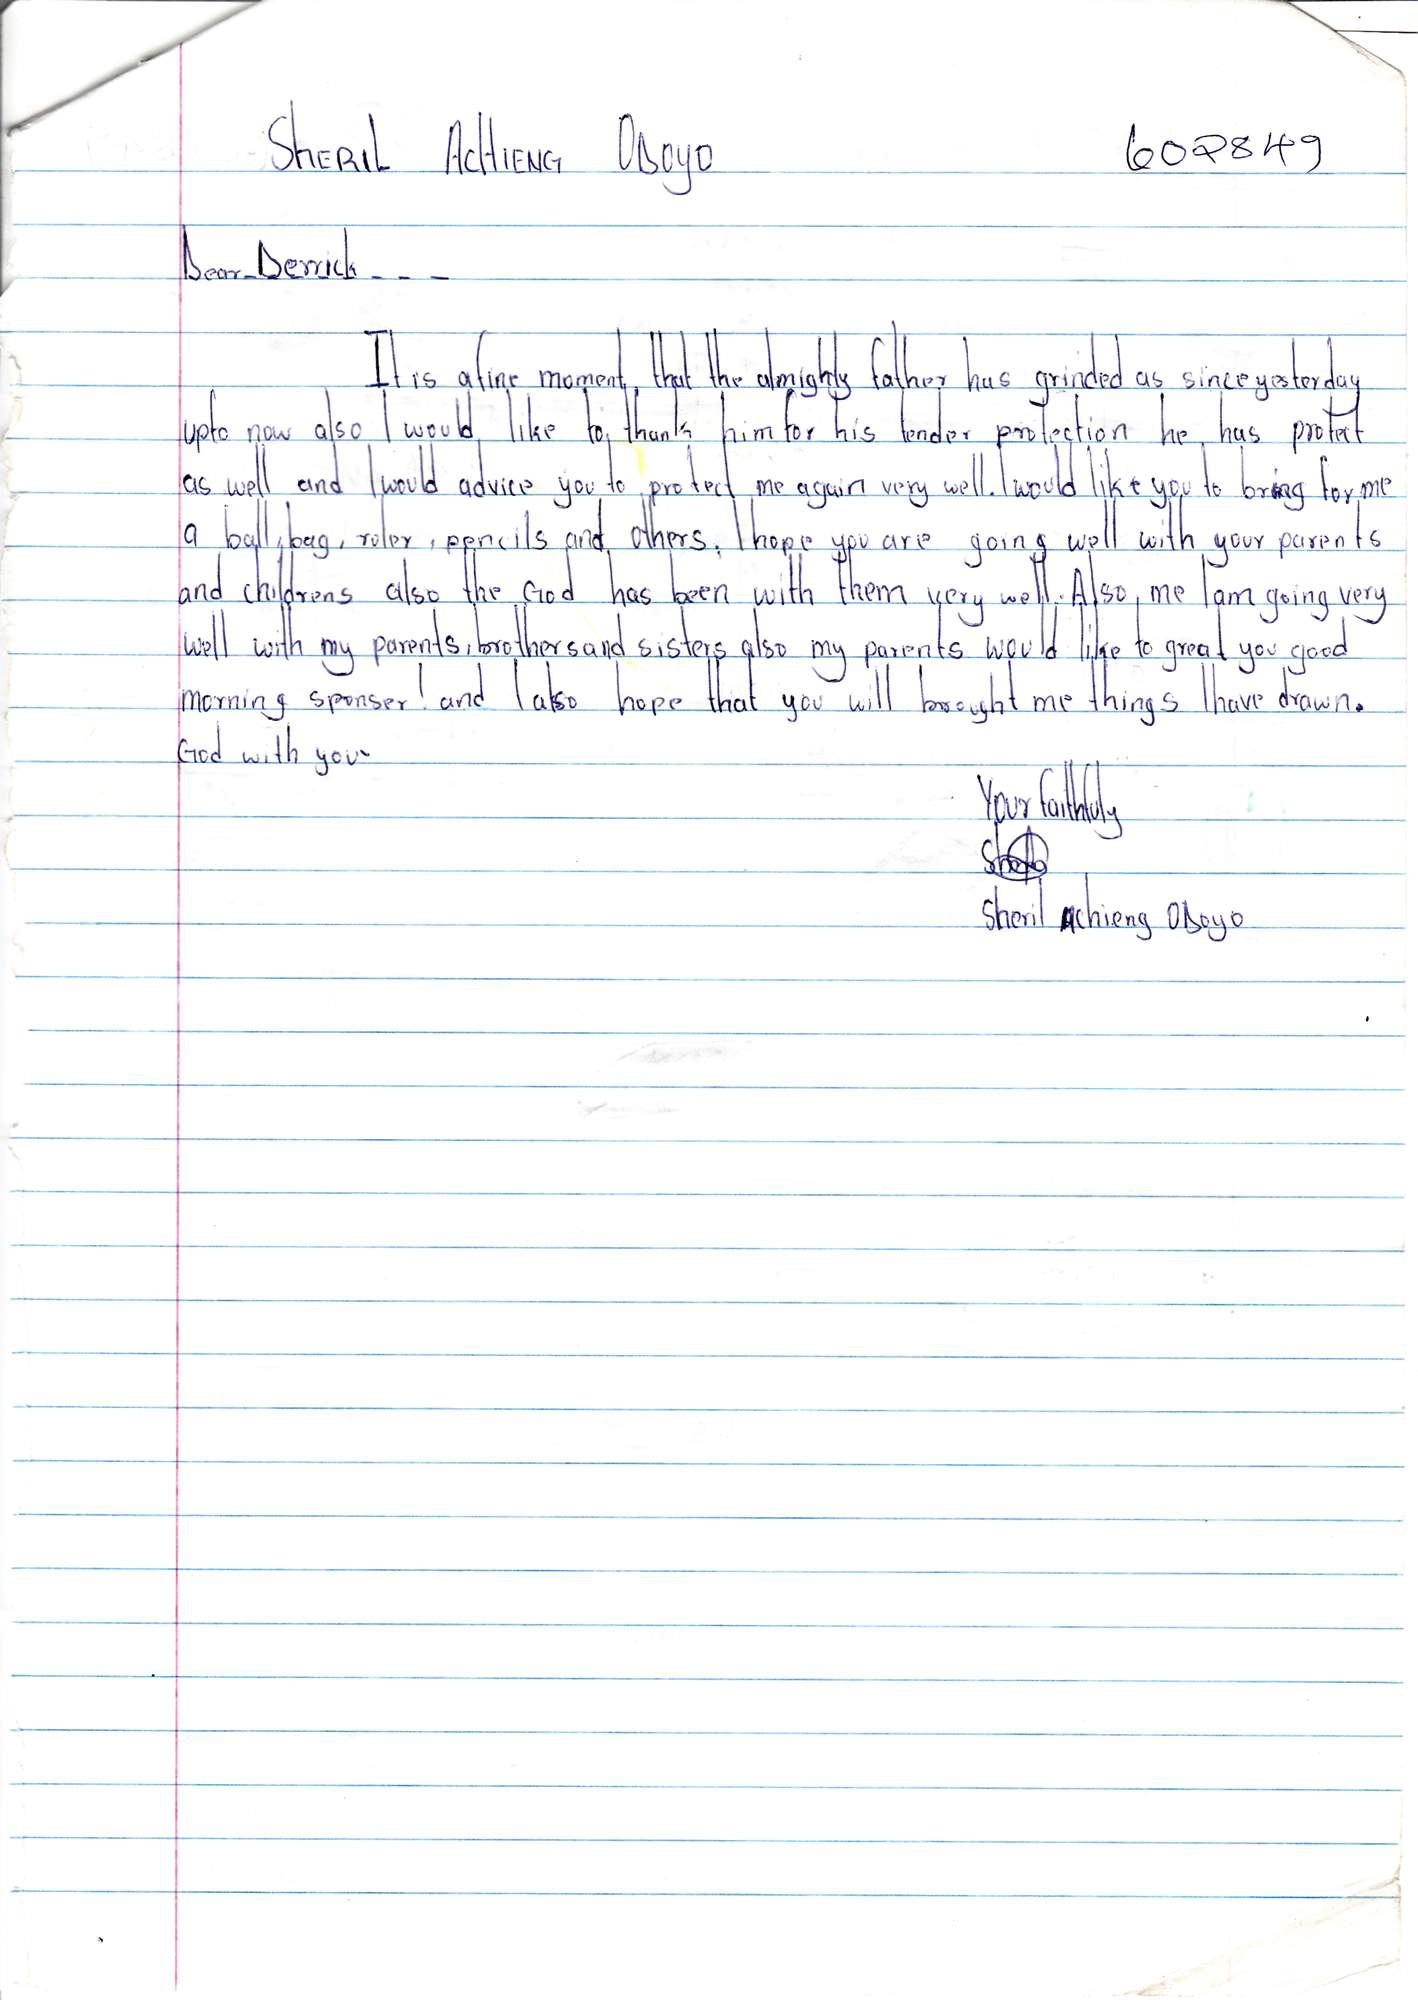 SHERIL ACHIENG OBOYO 602849
Dear Derrick - - -
It is a fine moment, that the almighty father has grinded as since yesterday
upto now also I would like to thank him for his tender protection he has protect
as well and I would advice you to protect me again very well. I would like you to bring for me
a ball, bag, ruler, pencils and others. I hope you are going well with your parents
and childrens also the God has been with them very well. Also, me I am going very
well with my parents, brothers and sisters also my parents would like to great you good
morning sponser! and I also hope that you will brought me things I have drawn.
God with you
Your faithfuly
Sheril Achieng OBoyo